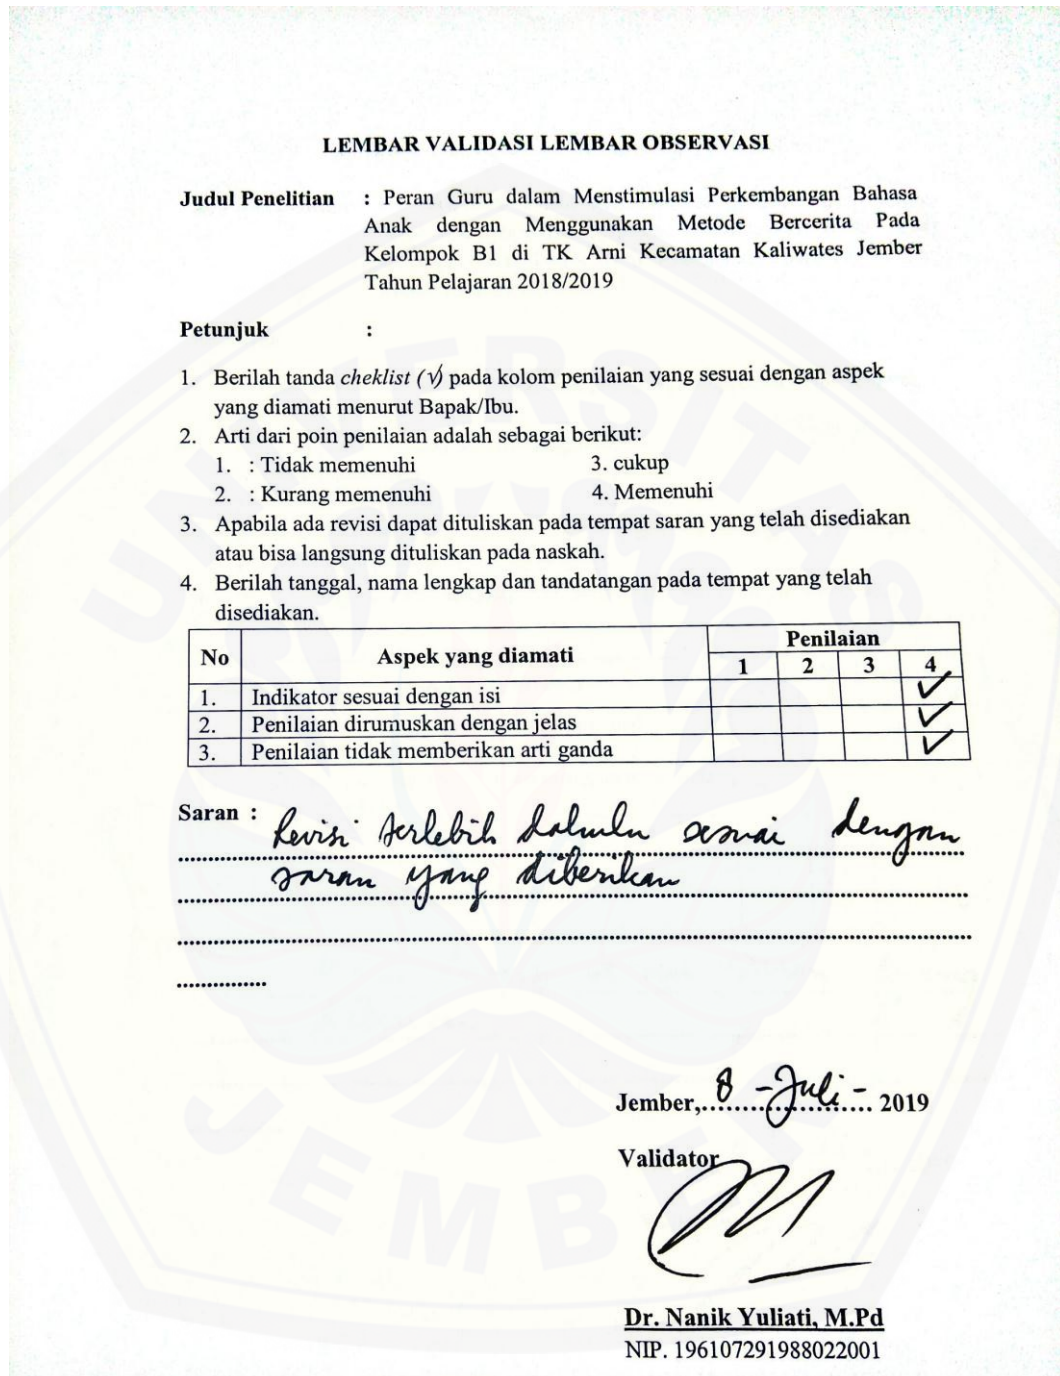 LEMBAR VALIDASI LEMBAR OBSERVASI
Judul Penelitian : Peran Guru dalam Menstimulasi Perkembangan Bahasa
Anak dengan Menggunakan Metode Bercerita Pada
Kelompok B1 di TK Arni Kecamatan Kaliwates Jember
Tahun Pelajaran 2018/2019
Petunjuk :
1. Berilah tanda cheklist (√) pada kolom penilaian yang sesuai dengan aspek
yang diamati menurut Bapak/Ibu.
2. Arti dari poin penilaian adalah sebagai berikut:
1. : Tidak memenuhi 3. cukup
2. : Kurang memenuhi 4. Memenuhi
3. Apabila ada revisi dapat dituliskan pada tempat saran yang telah disediakan
atau bisa langsung dituliskan pada naskah.
4. Berilah tanggal, nama lengkap dan tandatangan pada tempat yang telah
disediakan.
No Aspek yang diamati Penilaian
1 2 3 4
1. Indikator sesuai dengan isi ✓
2. Penilaian dirumuskan dengan jelas ✓
3. Penilaian tidak memberikan arti ganda ✓
Saran : Revisi terlebih dahulu sesuai dengan
saran yang diberikan
Jember, 8 - Juli - 2019
Validator
Dr. Nanik Yuliati, M.Pd
NIP. 196107291988022001
UNIVERSITAS
JEMBER